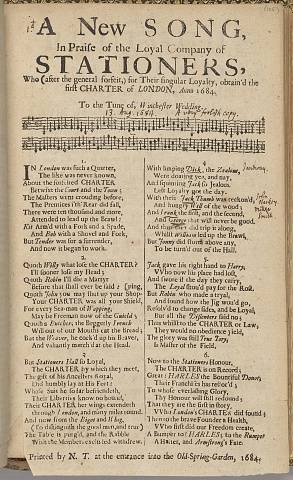 A New SONG,
In Praise of the Loyal Company of
STATIONERS,
Who (after the general forfeit,) for Their singular Loyalty, obtain'd the
first CHARTER of LONDON, Anno 1684.
To the Tune of, Winchester Wedding.
13. Aug. 1684.
IN London was such a Quarter,
The like was never known,
About the forfeited CHARTER
Betwixt the Court and the Town;
The Masters were crowding before,
The Prentices i'th' Rear did fall,
There were ten thousand and more,
Attended to lead up the Brawl:
Kit Arm'd with a Fork and a Spade,
And Pall with a Shovel and Fork,
But Tender was for a Surrender,
And now it began to work.
2.
Quoth Willy what lose the CHARTER?
I'll sooner lose my Head;
Quoth Robin I'll die a Martyr
Before that shall ever be said;
Quoth John you may shut up your Shops
Your CHARTER was all your Shield,
For every Sea-man of Wapping,
May be Freeman now of the Guild;
Quoth a Weaver, the Beggerly French
Will out of our Mouths eat the Bread:
But the Weaver, he cock'd up his Beaver,
And valiantly march'd at the Head.
3.
But Stationers Hall so Loyal,
The CHARTER by which they meet,
The gift of his Ancestors Royal,
Did humbly lay at His Feet:
Whose Suit he so far befriendeth,
Their Liberties know no bound,
Their CHARTER her wings extendeth
through London, and many miles round.
And now from the Tigot and Whig,
(To distinguish the good men, and true)
The Table is purg'd, and the Rabble
With the Members excised withdrew.
4.
With limping Dick, the Zealous,
Were doating yea, and nay,
And squinting Jack so Jealous,
Left Loyalty got the day.
With these Jack Thumb was reckon'd,
And hungry Will of the wood;
And took the first, and the second,
And that will never be good.
And that did trip it along,
Whilst William led up the Brawl,
But Jonny did flourish above any,
To be turn'd out of the Hall.
5.
Jack gave his right hand to Harry,
Who now his place had lost,
And swore if the day they carry,
The Loyal should pay for the Roast.
But Robin who made a tryal,
And found how the Jig wou'd go,
Resolv'd to change sides, and be Loyal,
But all the Dissenters said no;
Thus whilst to the CHARTER or Law,
They would no obedience yield,
The glory was still True Tory,
Is Master of the Field.
6.
Now to the Stationers Honour,
The CHARTER is on Record;
Great CHARLES the Bountiful Donor,
Their Franchises has restor'd;
To whose everlasting Glory,
Thy Honour will still redound;
That they are the first in story,
Who London's CHARTER did found;
Then up the brave Founder a Health,
Who first did our Freedom create,
A Bumper to CHARLES, to the Rumper
A Halter, and Armstrong's Fate.
Printed by N. T. at the entrance into the Old-Spring-Garden, 1684.